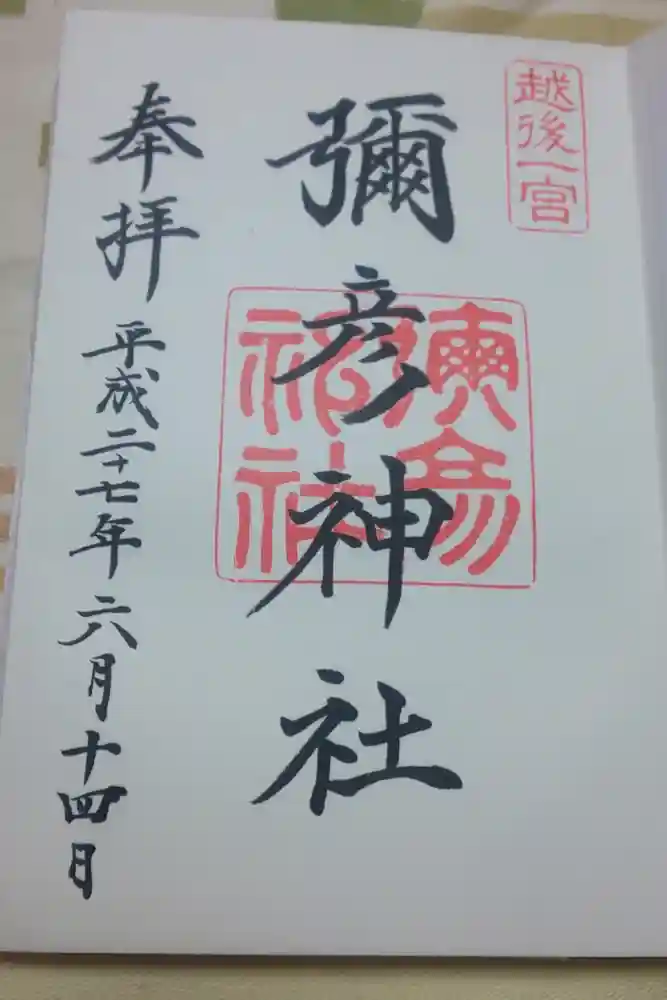 越後一宮
彌彦神社
彌彦神社
奉拝
平成二十七年六月十四日